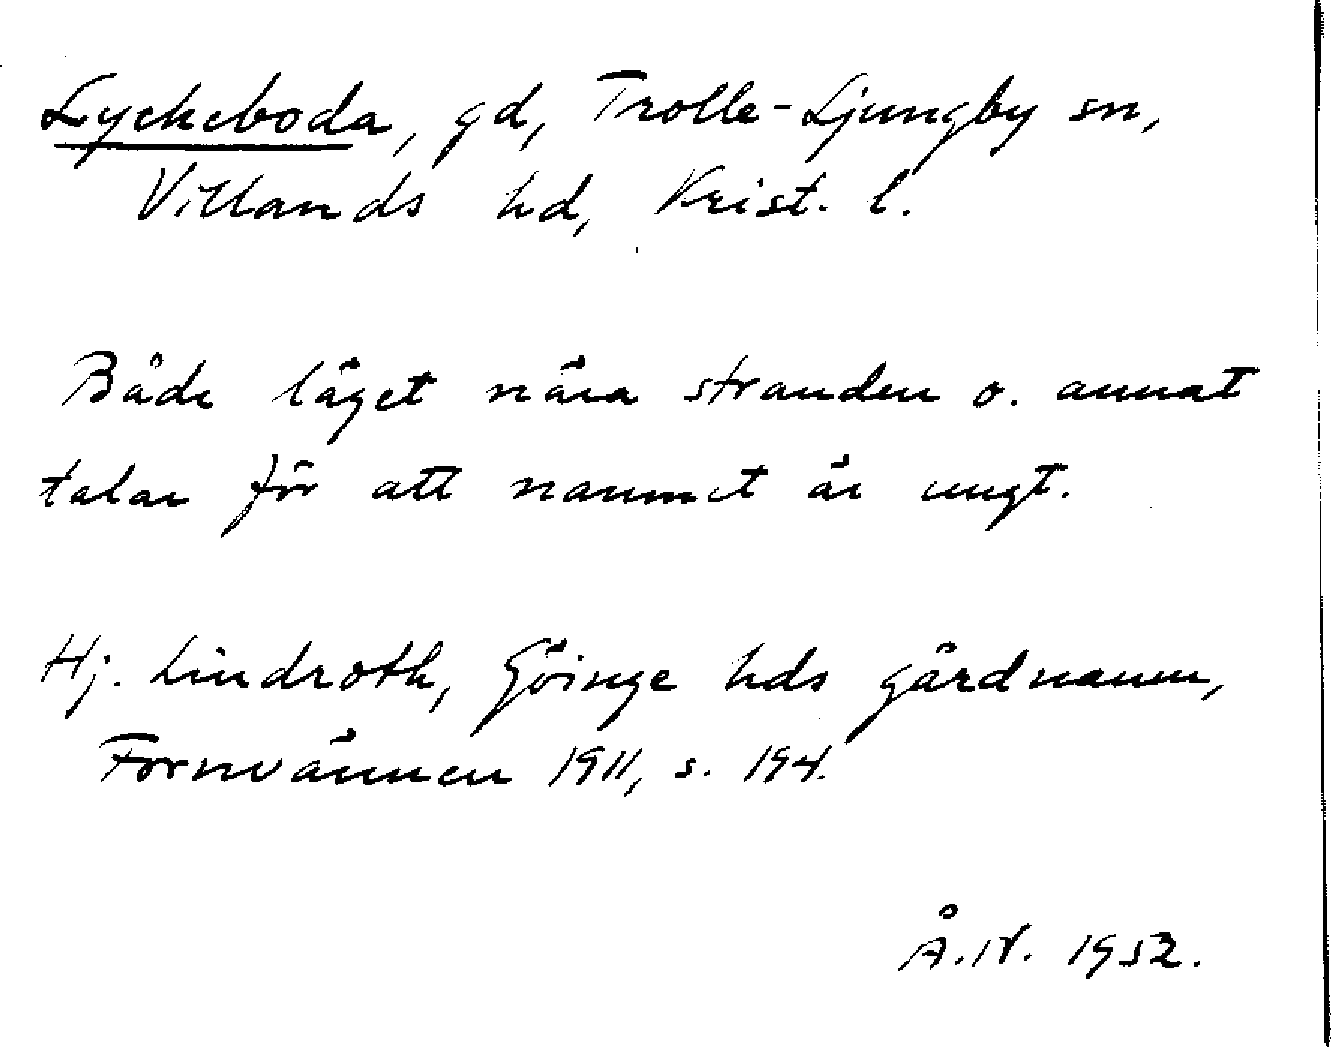 Lyckeboda, gd, Trolle-Ljungby sn,
Villands hd, Krist. l.
Både läget nära stranden o. annat
talar för att namnet är ungt.
Hj. Lindroth, Göinge hds gårdnamn,
Fornvännen 1911, s. 194.
Å.N. 1952.